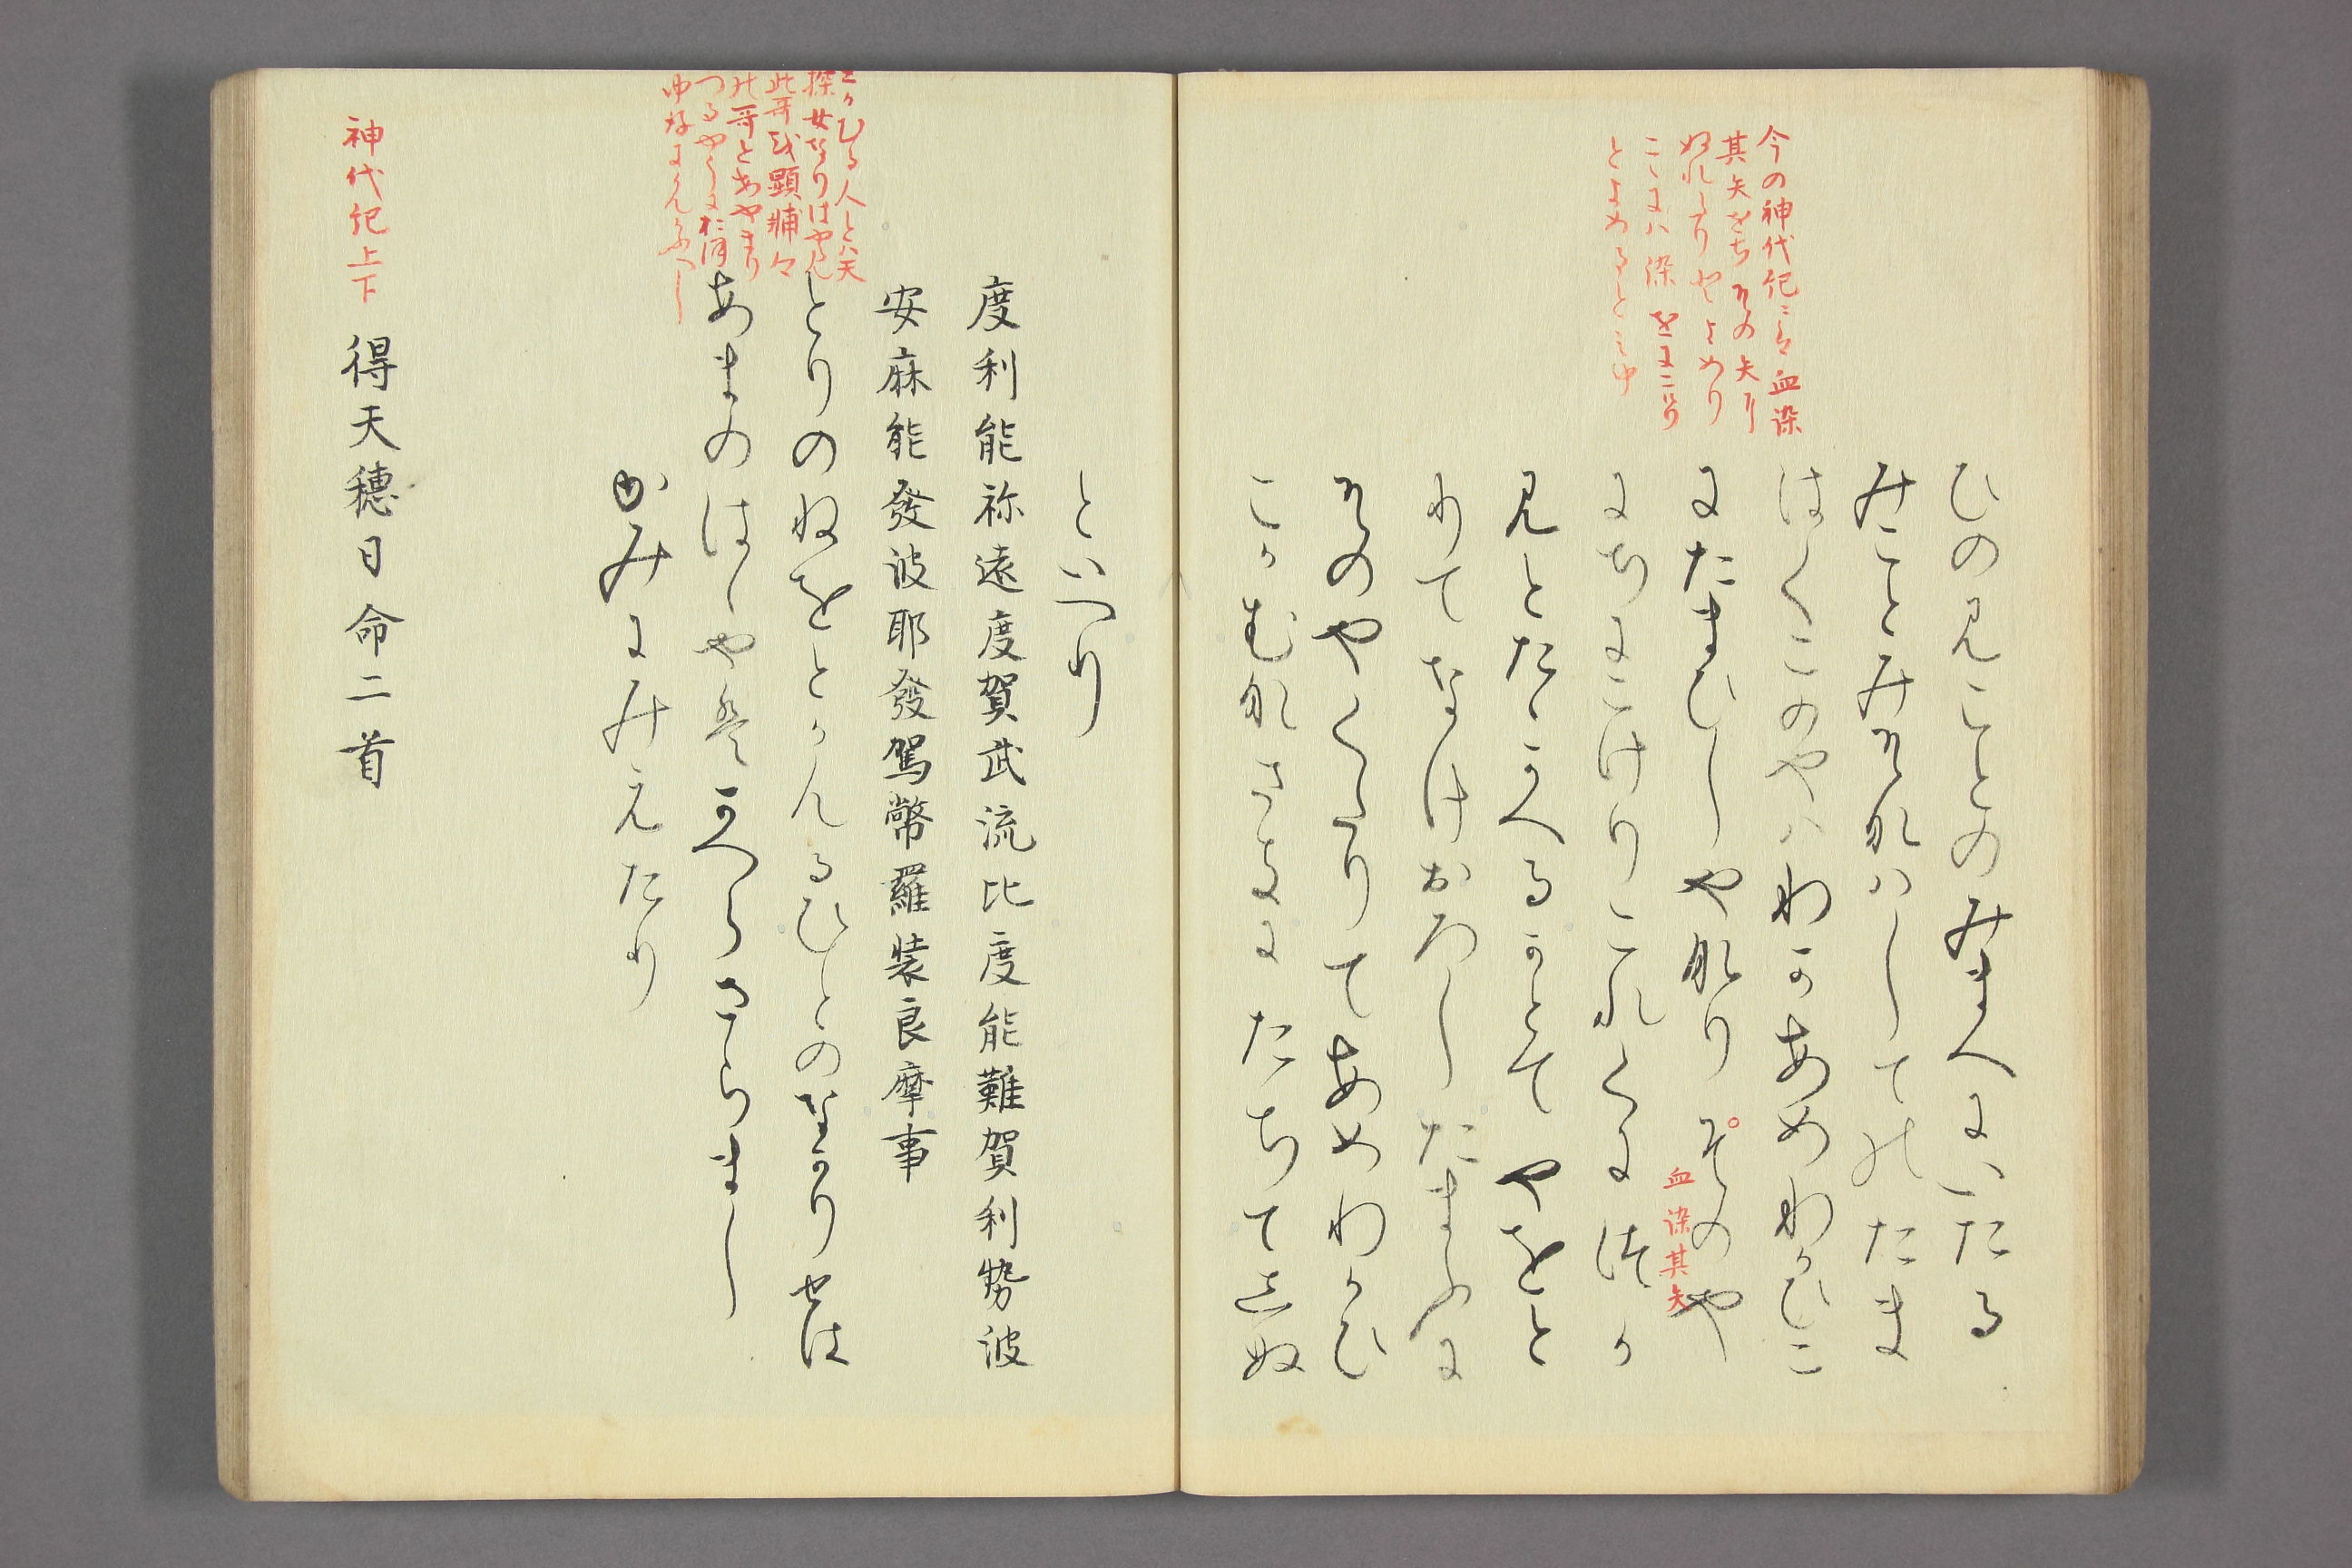 今の神代紀ニハ血染
其矢をちその矢に
ぬれたりとよめり
こゝにハ染をにこけり
とよめるとみゆ
ひの見ことのみまへにいたる
みことみそなハしてのたま
はくこのやハわかあめわかひこ
にたまひしやなりそのや
血染其矢
にちにこけりこれくにつか
見とたゝかへるかとてやをと
りてなけおろしたまふに
そのやくたりてあめわかひ
こかむなさかにたちて志ぬ
といへり
度利能祢遠度賀武流比度能難賀利勢波
安麻能發波耶發駕幣羅裝良摩事
とかむる人とハ天
探女なりはやく見
此哥或顕輔
の哥とあやまり
とりのねをとかむるひとのなかりせは
あまのはゝやはかへらさらまし
かみにみえたり
神代紀上下
得天穂日命二首